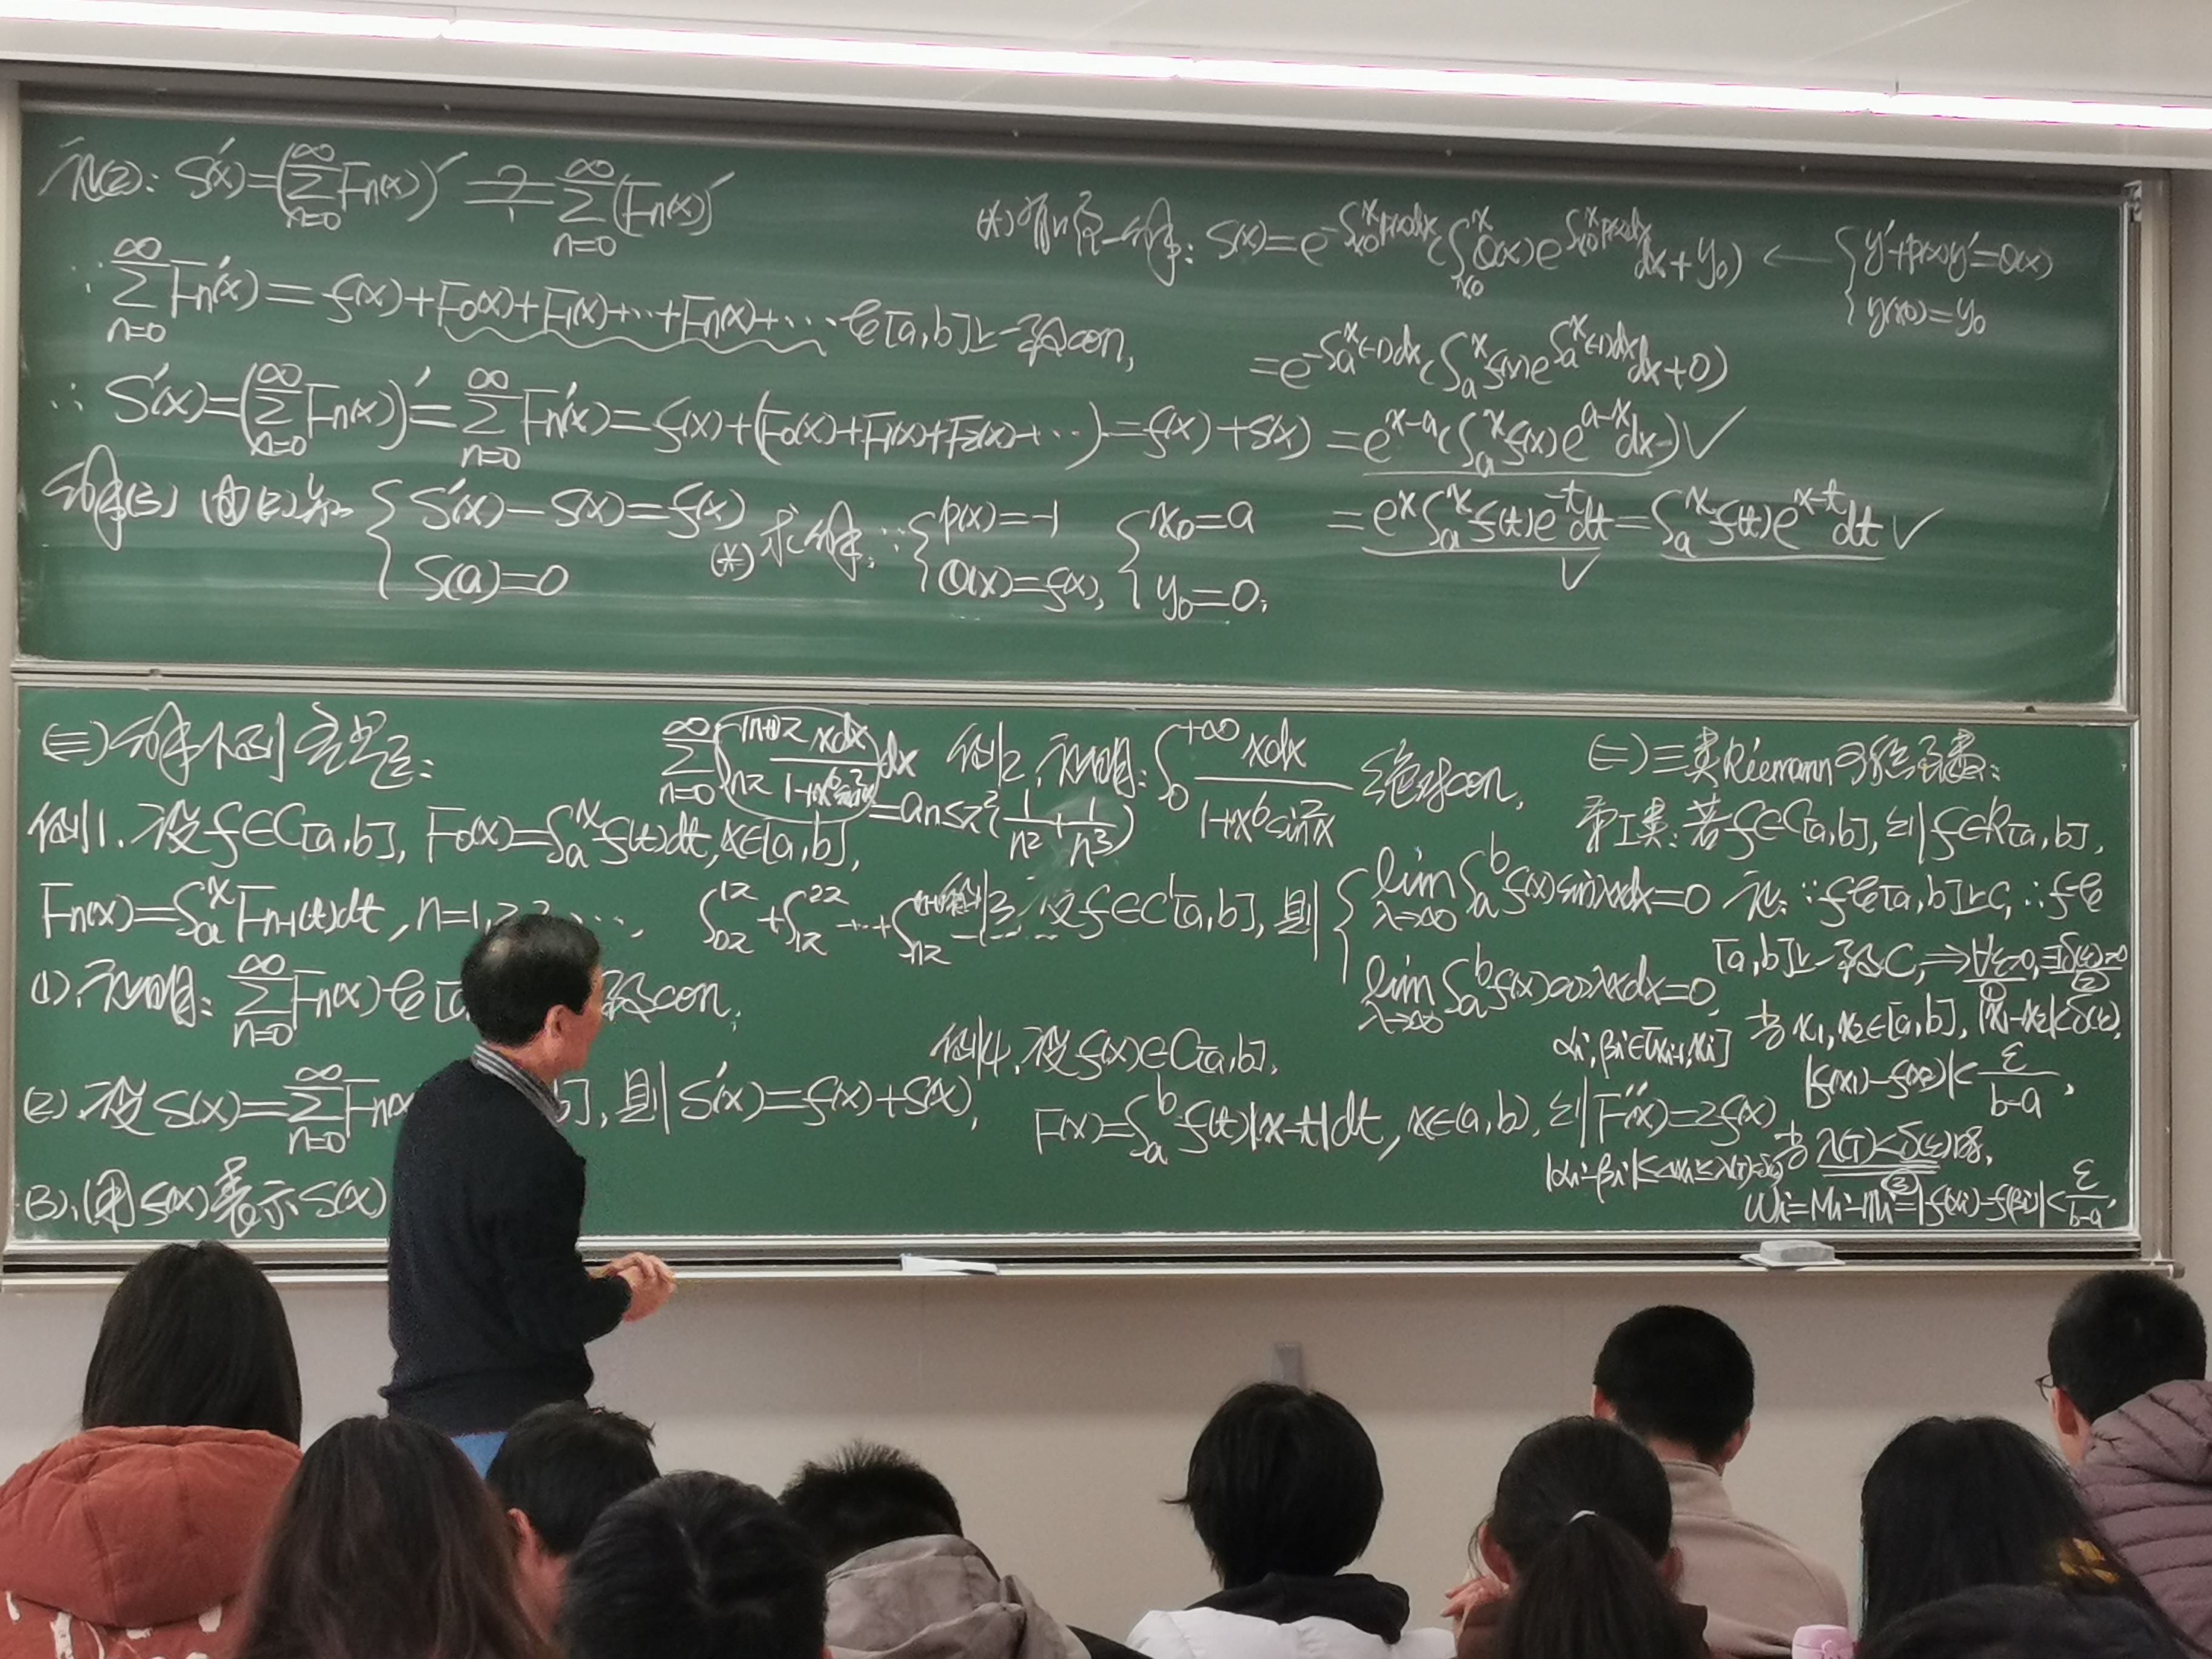 证(2): S'(x)=(∑_{n=0}^{∞}Fn(x))' =?= ∑_{n=0}^{∞}(Fn(x))'
∵ ∑_{n=0}^{∞}Fn'(x)=f(x)+F0(x)+F1(x)+…+Fn(x)+… 在[a,b]上一致con,
∴ S'(x)=(∑_{n=0}^{∞}Fn(x))'=∑_{n=0}^{∞}Fn'(x)=f(x)+(F0(x)+F1(x)+F2(x)+…)=f(x)+S(x)
解(3) 由(2)知 {S'(x)-S(x)=f(x) S(a)=0 (*) 求解: ∵ {p(x)=-1 Q(x)=f(x), {x0=a y0=0;
(*)有唯一解: S(x)=e^{-∫_{x0}^{x}p(x)dx}(∫_{x0}^{x}Q(x)e^{∫_{x0}^{x}p(x)dx}dx+y0) ← {y'+p(x)y'=Q(x) y(x0)=y0
=e^{-∫_a^x(-1)dx}(∫_a^x f(x)e^{∫_a^x(-1)dx}dx+0)
=e^{x-a}(∫_a^x f(x)e^{a-x}dx) √
=e^x∫_a^x f(t)e^{-t}dt=∫_a^x f(t)e^{x-t}dt √
√
(三)解下列各题:
例1. 设f∈C[a,b], F0(x)=∫_a^x f(t)dt, x∈[a,b],
Fn(x)=∫_a^x Fn-1(t)dt, n=1,2,3,…,
(1).证明: ∑_{n=0}^{∞}Fn(x)在[a 致con;
(2).设S(x)=∑_{n=0}^{∞}Fn(x b], 则S'(x)=f(x)+S(x),
(3).用f(x)表示S(x)
∑_{n=0}^{∞}(∫_{nπ}^{(n+1)π} xdx/(1+x^6sin^2x))dx
=an≤π^2(1/n^2+1/n^3)
∫_{0π}^{1π}+∫_{1π}^{2π}…+∫_{nπ}
例2.证明: ∫_0^{+∞} xdx/(1+x^6sin^2x) 绝对con,
例3. 设f∈C'[a,b], 则 {lim_{λ→∞}∫_a^b f(x)sinλxdx=0
lim_{λ→∞}∫_a^b f(x)cosλxdx=0,
例4. 设f(x)∈C[a,b],
F(x)=∫_a^b f(t)|x-t|dt, x∈(a,b), 则F''(x)=2f(x)
(二)三类Riemann可积函数:
第I类: 若f∈C[a,b], 则f∈R[a,b],
证: ∵f在[a,b]上C, ∴f在
[a,b]上一致C, ⇒∀ε>0, ∃δ(ε)>0
① ②
当x1,x2∈[a,b], |x1-x2|<δ(ε),
|f(x1)-f(x2)|<ε/(b-a),
αi,βi∈[xi-1,xi]
当λ(T)<δ(ε)时,
③
|αi-βi|≤Δxi≤λ(T)<δ(ε)
Wi=Mi-mi=|f(αi)-f(βi)|<ε/(b-a),